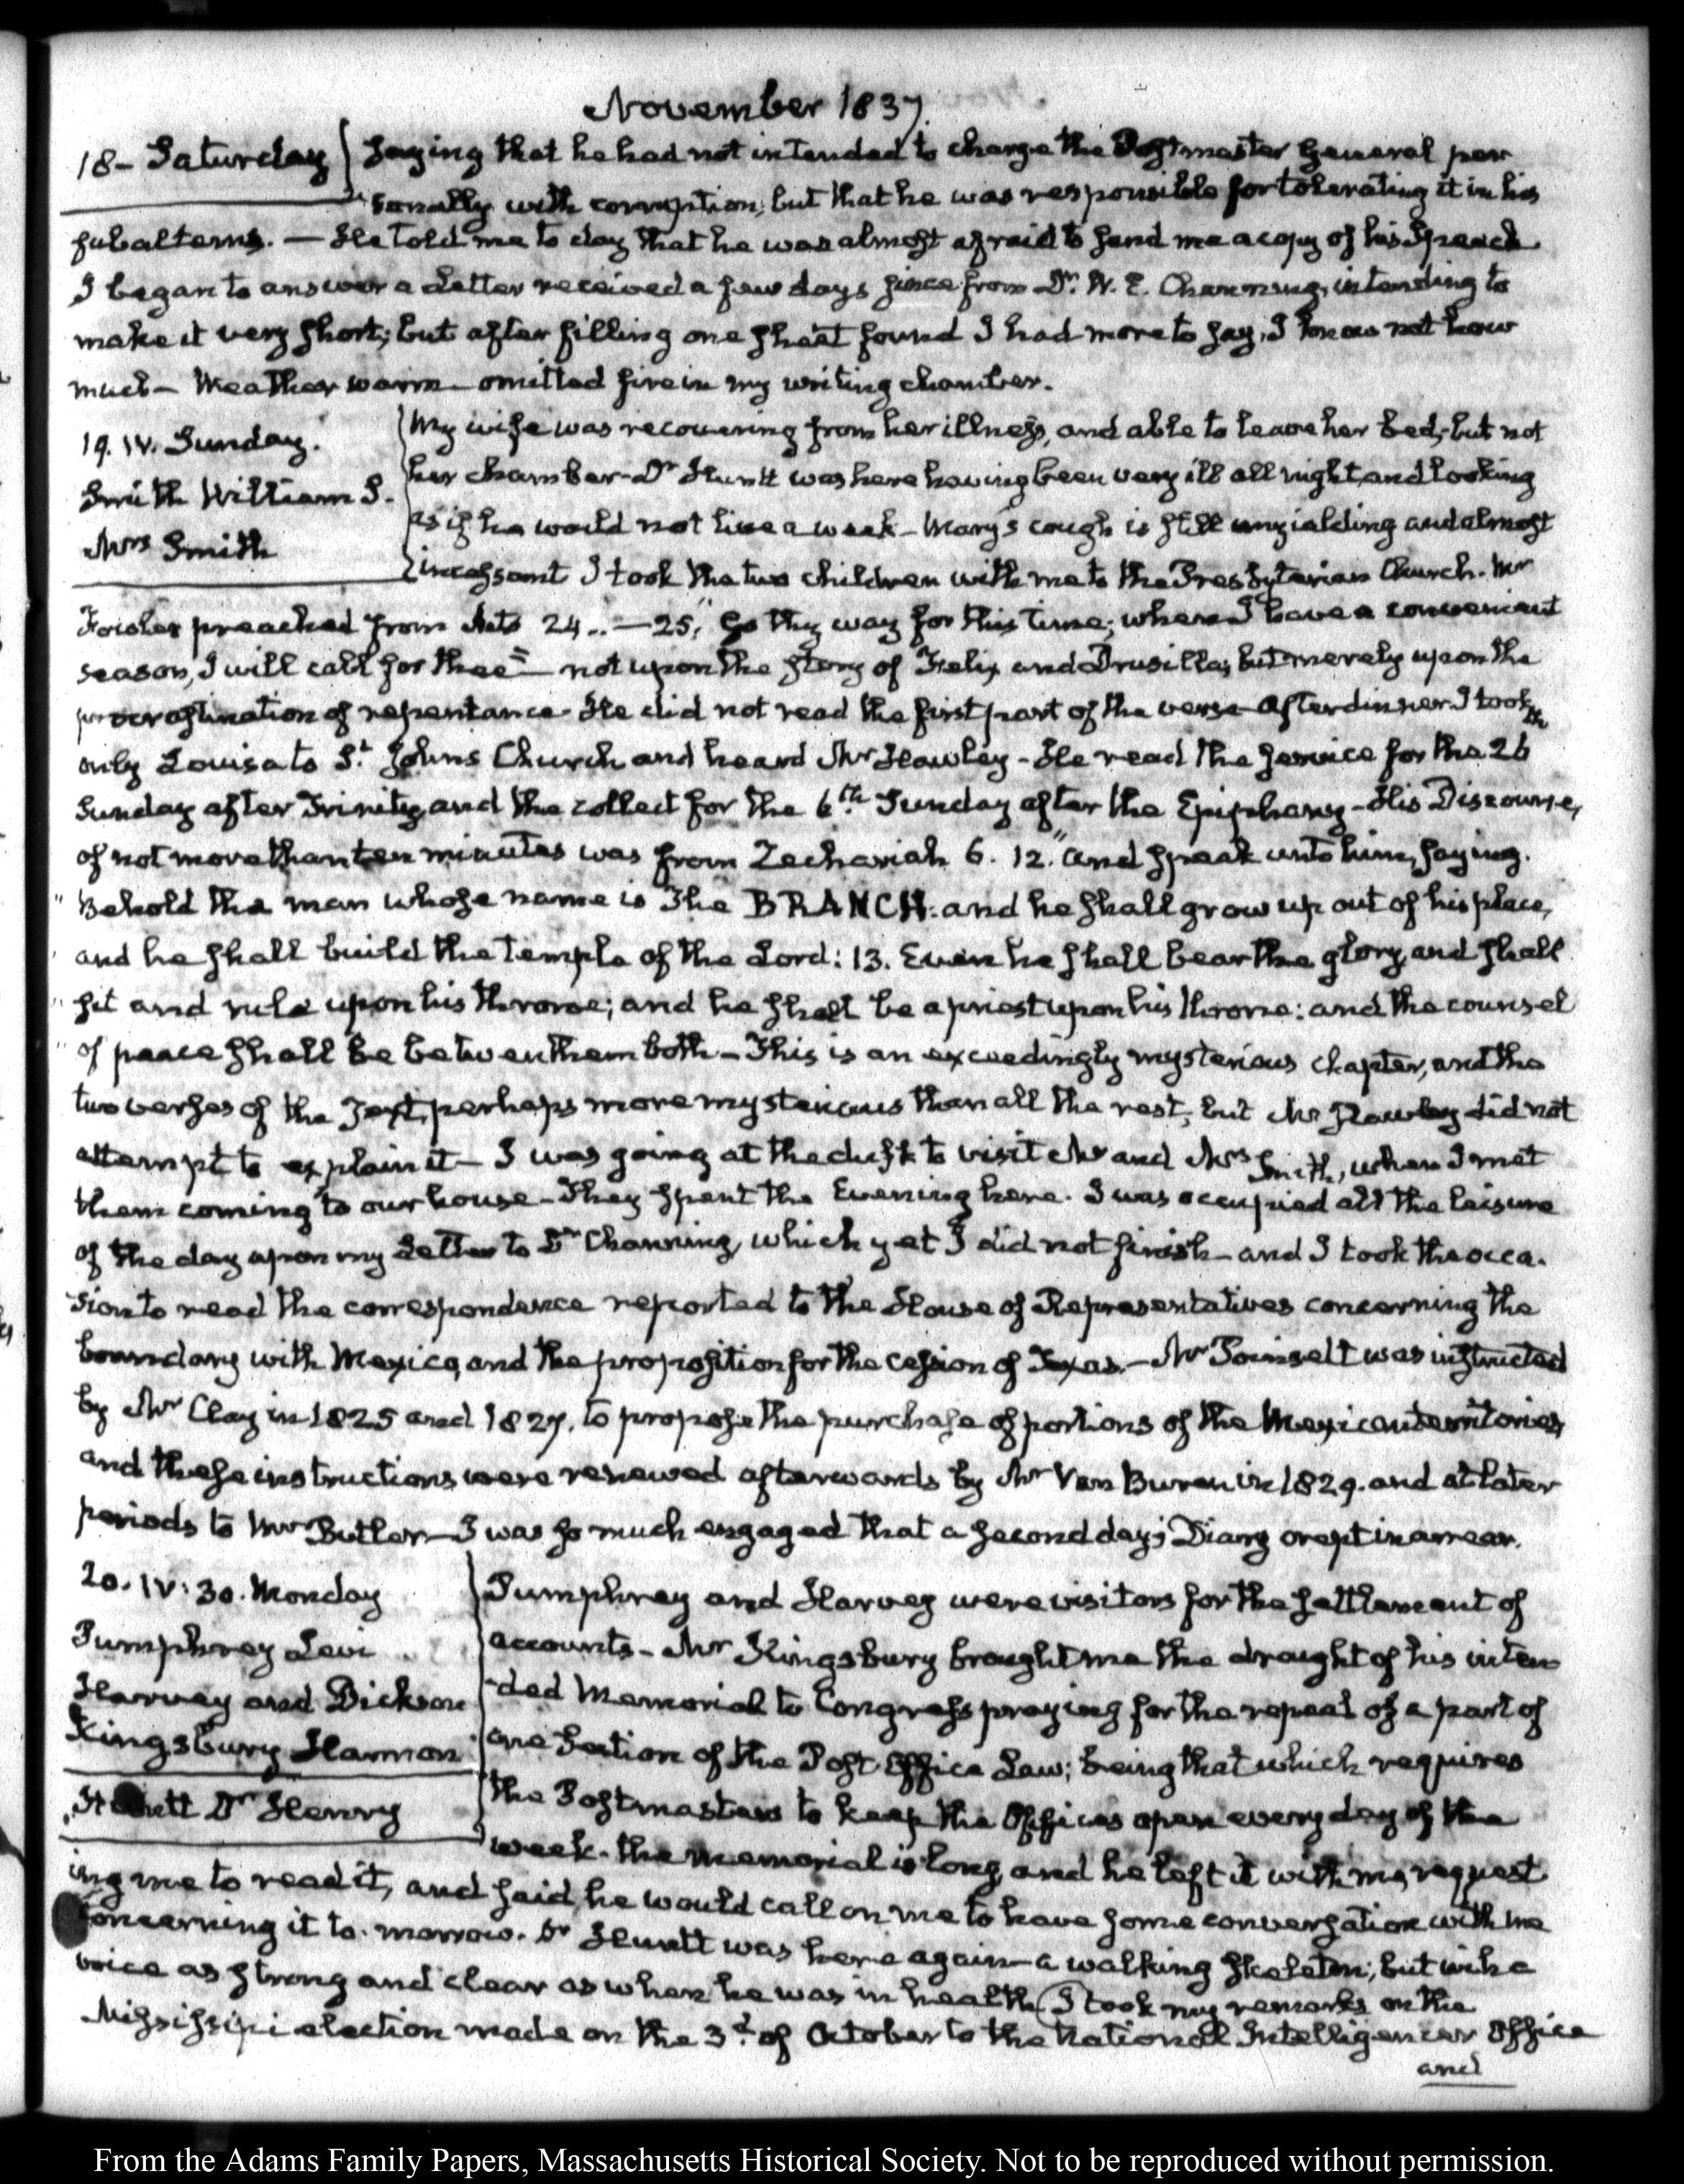 November 1837.
18- Saturday
saying that he had not intended to charge the Postmaster General per
sonally with corruption; but that he was responsible for tolerating it in his
subalterns. — He told me to day that he was almost afraid to send me a copy of his Speech
I began to answer a Letter received a few days since from Dr. W. E. Channing, intending to
make it very short; but after filling one sheet found I had more to say, I know not how
much — Weather warm — omitted fire in my writing chamber.
19. IV. Sunday.
Smith William S.
Mrs Smith
My wife was recovering from her illness, and able to leave her bed, but not
her chamber - Dr Huntt was here having been very ill all night, and looking
as if he would not live a week - Mary's cough is still unyielding and almost
incessant I took the two children with me to the Presbyterian Church. Mr
Fowler preached from Acts 24..—25, "Go thy way for this time; when I have a convenient
season, I will call for thee" — not upon the story of Felix and Drusilla, but merely upon the
procrastination of repentance - He did not read the first part of the verse - After dinner I took
only Louisa to St. Johns Church and heard Mr Hawley - He read the service for the 26th
Sunday after Trinity, and the collect for the 6th Sunday after the Epiphany - His Discourse,
of not more than ten minutes was from Zechariah 6. 12. "and speak unto him, saying.
"Behold the man whose name is The BRANCH: and he shall grow up out of his place,
" and he shall build the temple of the Lord: 13. Even he shall bear the glory, and shall
" sit and rule upon his throne; and he shall be a priest upon his throne: and the counsel
" of peace shall be between them both - This is an exceedingly mysterious chapter, and the
two verses of the Text, perhaps more mysterious than all the rest, but Mr Hawley did not
attempt to explain it — I was going at the dusk to visit Mr and Mrs Smith, when I met
them coming to our house - They spent the Evening here. I was occupied all the leisure
of the day upon my Letter to Dr Channing, which yet I did not finish - and I took the occa-
sion to read the correspondence reported to the House of Representatives concerning the
boundary with Mexico, and the proposition for the cession of Texas. — Mr Poinsett was instructed
by Mr Clay in 1825 and 1827. to propose the purchase of portions of the Mexican territories,
and these instructions were renewed afterwards by Mr Van Buren in 1829. and at later
periods to Mr Butler — I was so much engaged that a second day's Diary crept in arrear.
20. IV: 30. Monday
Pumphrey Levi
Harvey and Dickson
Kingsbury Harmon
Huntt Dr Henry
Pumphrey and Harvey were visitors for the settlement of
accounts - Mr Kingsbury brought me the draught of his inten
ded Memorial to Congress praying for the repeal of a part of
one Section of the Post Office Law; being that which requires
the Postmasters to keep the Offices open every day of the
week. the memorial is long, and he left it with me, request
ing me to read it, and said, he would call on me to have some conversation with me
concerning it to-morrow. Dr Huntt was here again — a walking skeleton; but with a
voice as strong and clear as when he was in health (I took my remarks on the
Mississippi election made on the 3d. of October to the National Intelligencer Office
and
From the Adams Family Papers, Massachusetts Historical Society. Not to be reproduced without permission.